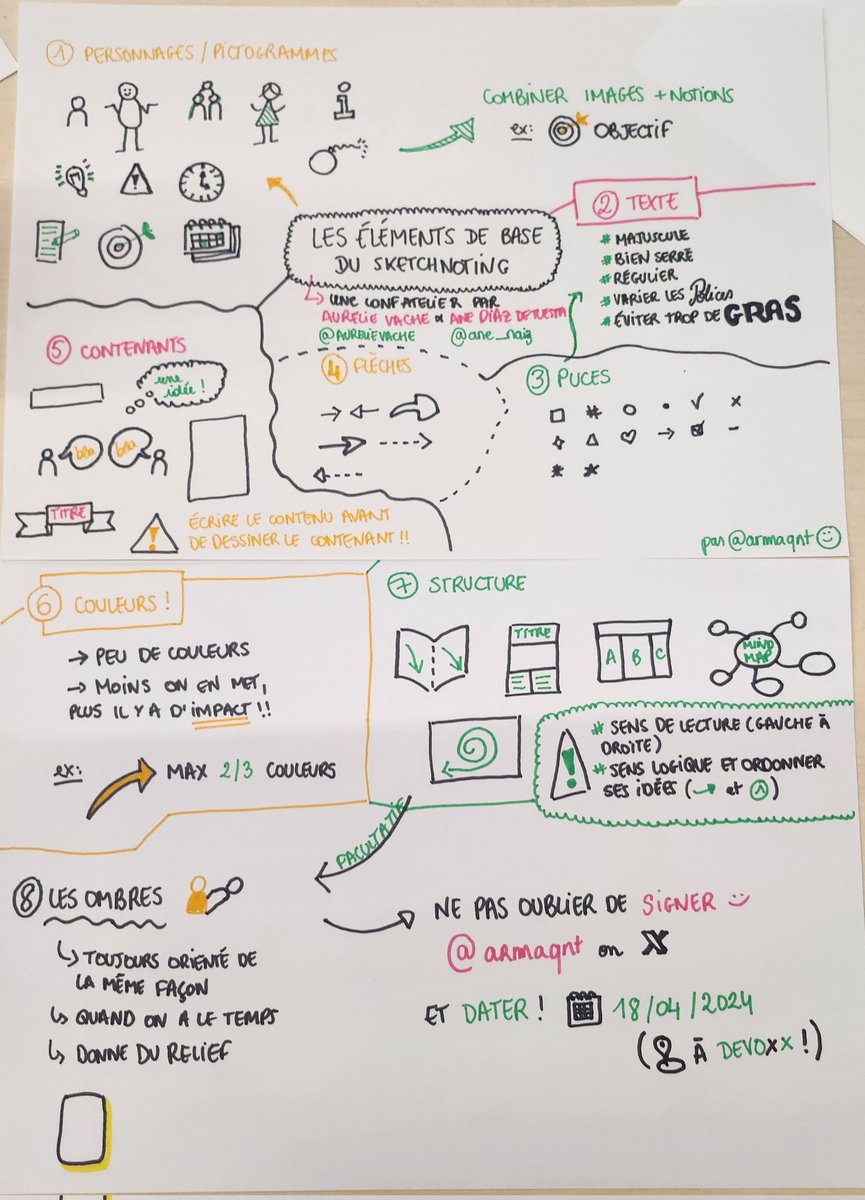 ① PERSONNAGES / PICTOGRAMMES
COMBINER IMAGES + NOTIONS
ex: OBJECTIF
LES ÉLÉMENTS DE BASE
DU SKETCHNOTING
↳ UNE CONF ATELIER PAR
AURELIE VACHE & ANE DIAZ DE TUESTA
@AURELIEVACHE @ane_naiz
② TEXTE
# MAJUSCULE
# BIEN SERRÉ
# RÉGULIER
# VARIER LES Polices
# ÉVITER TROP DE GRAS
③ PUCES
④ FLÈCHES
⑤ CONTENANTS
une
idée !
bla bla
TITRE
! ÉCRIRE LE CONTENU AVANT
DE DESSINER LE CONTENANT !!
par @armaqnt
⑥ COULEURS !
→ PEU DE COULEURS
→ MOINS ON EN MET,
PLUS IL Y A D'IMPACT !!
ex: MAX 2/3 COULEURS
⑦ STRUCTURE
TITRE
A B C
MIND
MAP
! # SENS DE LECTURE (GAUCHE À
DROITE)
# SENS LOGIQUE ET ORDONNER
SES IDÉES (→ et ①)
FACULTATIF
⑧ LES OMBRES
↳ TOUJOURS ORIENTÉ DE
LA MÊME FAÇON
↳ QUAND ON A LE TEMPS
↳ DONNE DU RELIEF
NE PAS OUBLIER DE SIGNER
@armaqnt on X
ET DATER ! 18/04/2024
(À DEVOXX !)